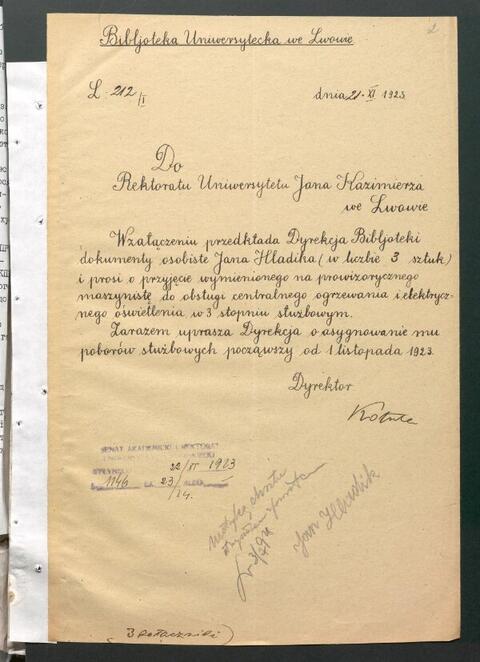 2
Bibljoteka Uniwersytecka we Lwowie
L. 212/I dnia 21. XI 1923
Do
Rektoratu Uniwersytetu Jana Kazimierza
we Lwowie
Wzałączeniu przedkłada Dyrekcja Bibljoteki
dokumenty osobiste Jana Hladika (w liczbie 3 sztuk)
i prosi o przyjęcie wymienionego na prowizorycznego
maszynistę do obsługi centralnego ogrzewania i elektrycz-
nego oświetlenia w 3 stopniu służbowym.
Zarazem uprasza Dyrekcja o asygnowanie mu
poborów służbowych począwszy od 1 listopada 1923.
Dyrektor
Kotula
SENAT AKADEMICKI I REKTORAT
22/XI 1923
L. 1146 23/24.
Jan Hladik
3 załączniki)